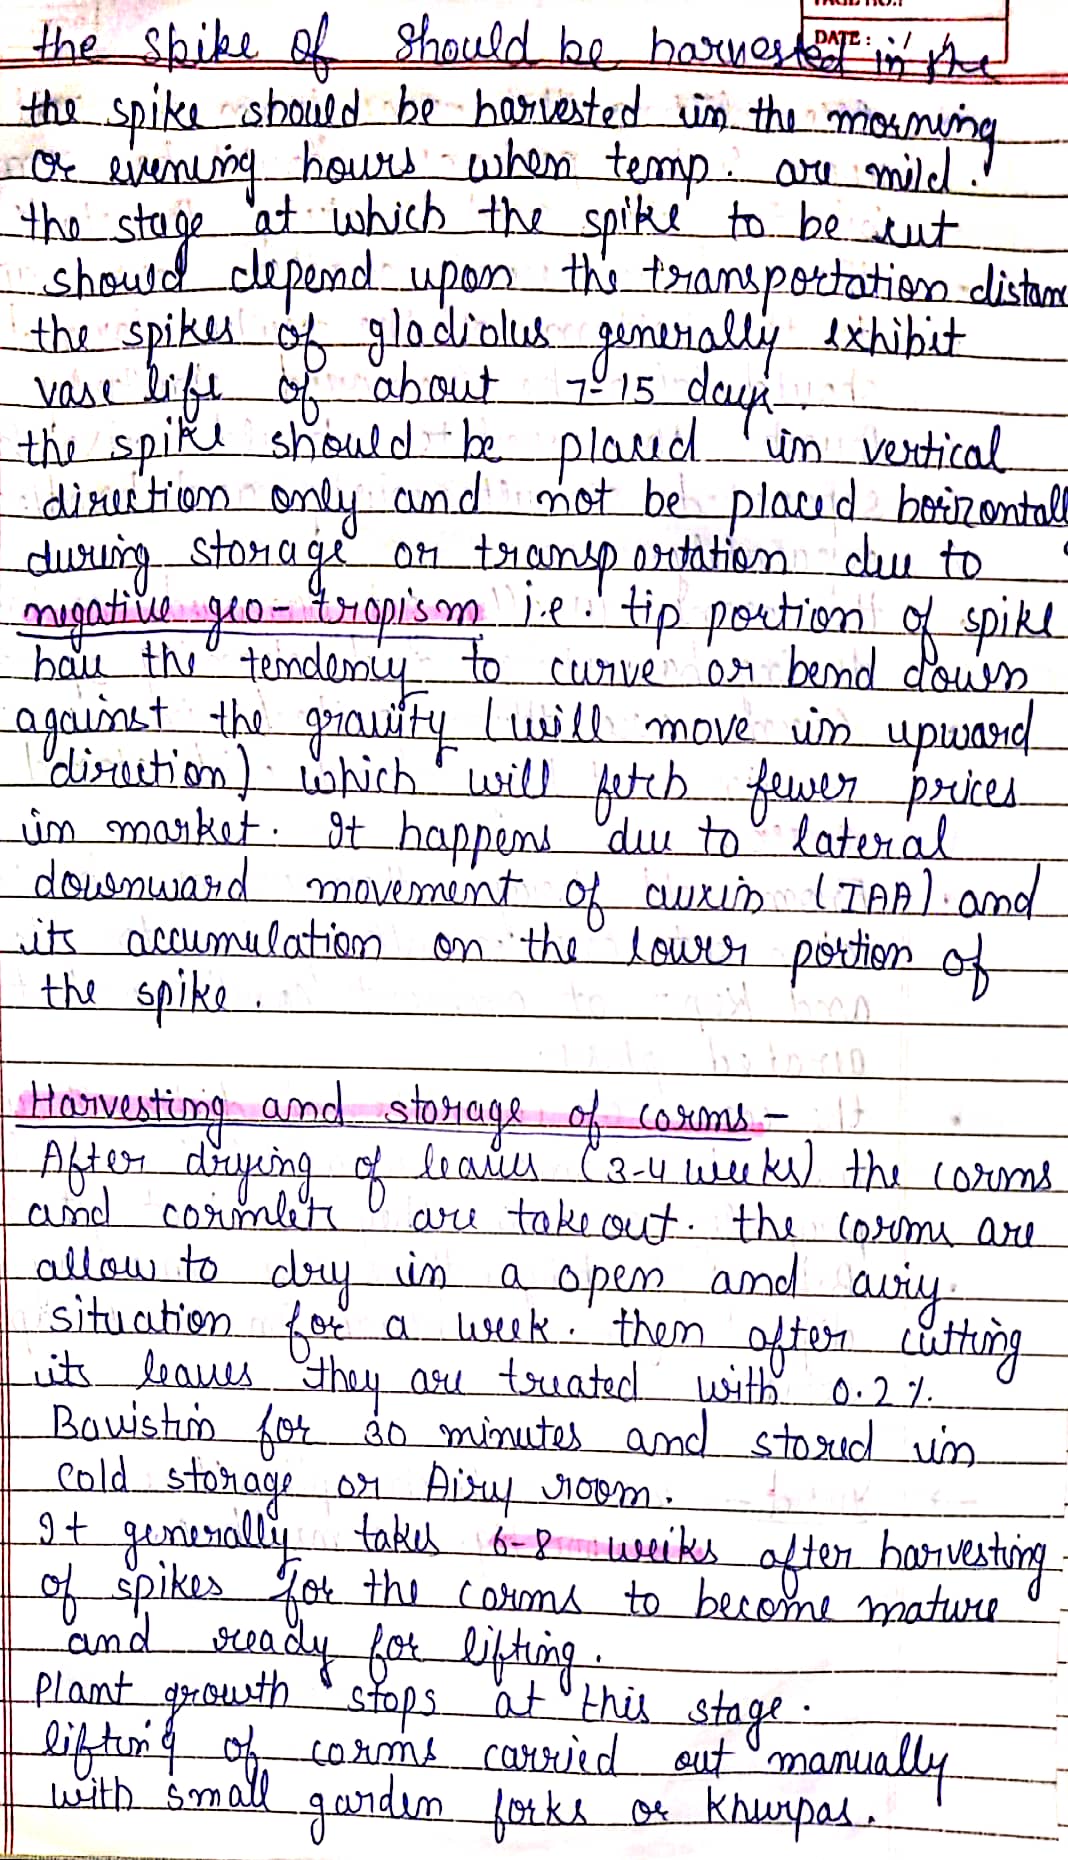 DATE: / /
the spike of should be harvested in the
the spike should be harvested in the morning
or evening hours when temp. are mild.
the stage at which the spike to be cut
should depend upon the transportation distanc
the spikes of gladiolus generally exhibit
vase life of about 7-15 days.
the spike should be placed in vertical
direction only and not be placed horizontall
during storage or transportation due to
negative geo-tropism i.e. tip portion of spike
have the tendency to curve or bend down
against the gravity (will move in upward
direction) which will fetch fewer prices
in market. It happens due to lateral
downward movement of auxin (IAA) and
its accumulation on the lower portion of
the spike.
Harvesting and storage of corms-
After drying of leaves (3-4 weeks) the corms
and cormlets are take out. the corms are
allow to dry in a open and airy
situation for a week. then after cutting
its leaves they are treated with 0.2%.
Bavistin for 30 minutes and stored in
cold storage or Airy room.
It generally takes 6-8 weeks after harvesting
of spikes for the corms to become mature
and ready for lifting.
Plant growth stops at this stage.
lifting of corms carried out manually
with small garden forks or Khurpas.